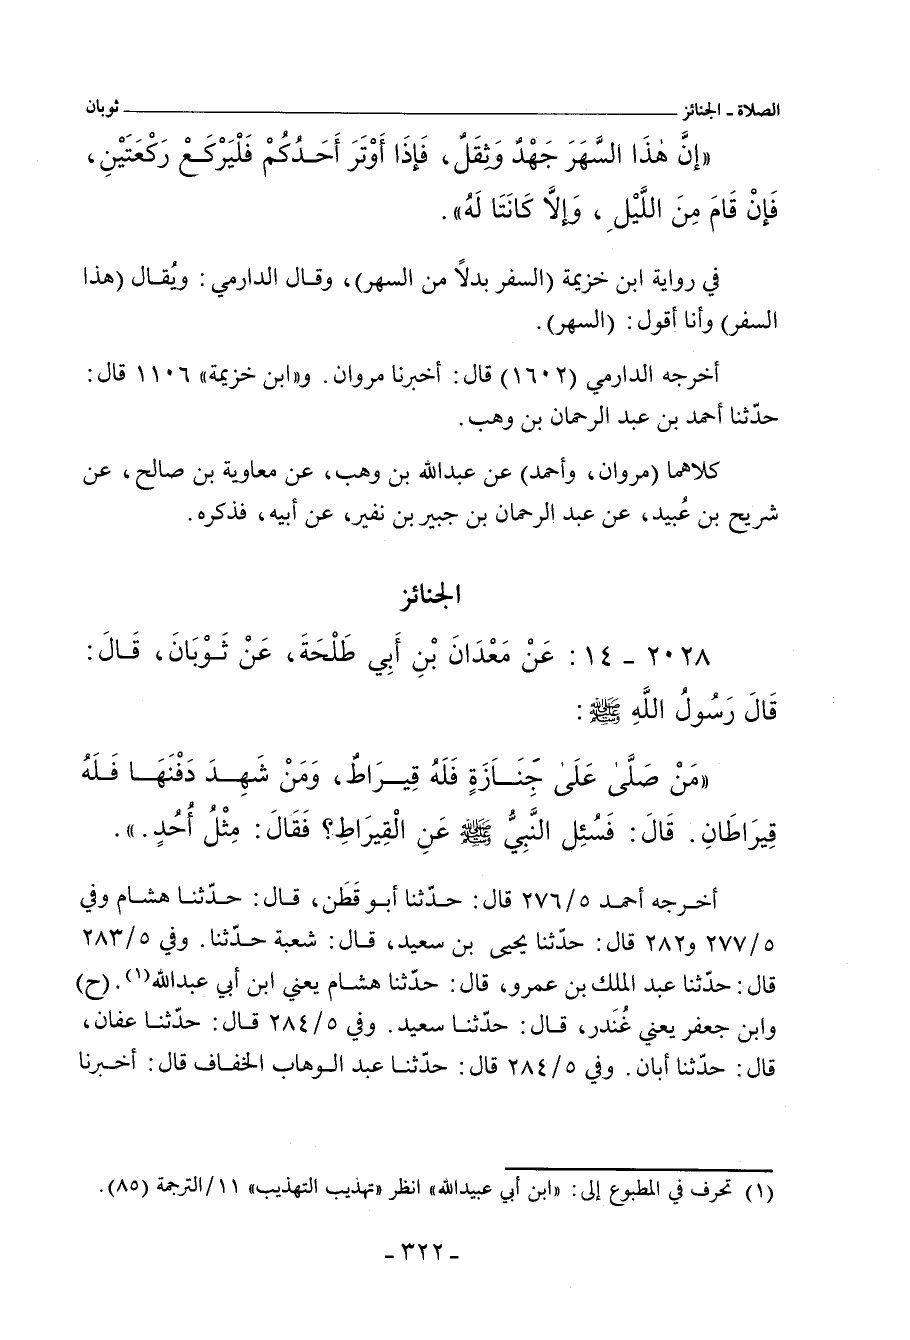 الصلاة ـ الجنائز ثوبان
«إِنَّ هٰذَا السَّهَرَ جَهْدٌ وَثِقَلٌ، فَإِذَا أَوْتَرَ أَحَدُكُمْ فَلْيَرْكَعْ رَكْعَتَيْنِ،
فَإِنْ قَامَ مِنَ اللَّيْلِ، وَإِلَّا كَانَتَا لَهُ».
في رواية ابن خزيمة (السفر بدلاً من السهر)، وقال الدارمي: ويُقال (هذا
السفر) وأنا أقول: (السهر).
أخرجه الدارمي (١٦٠٢) قال: أخبرنا مروان. و«ابن خزيمة» ١١٠٦ قال:
حدّثنا أحمد بن عبد الرحمان بن وهب.
كلاهما (مروان، وأحمد) عن عبدالله بن وهب، عن معاوية بن صالح، عن
شريح بن عُبيد، عن عبد الرحمان بن جبير بن نفير، عن أبيه، فذكره.
الجنائز
٢٠٢٨ ـ ١٤: عَنْ مَعْدَانَ بْنِ أَبِي طَلْحَةَ، عَنْ ثَوْبَانَ، قَالَ:
قَالَ رَسُولُ اللَّهِ ﷺ:
«مَنْ صَلَّىٰ عَلَىٰ جَِنَازَةٍ فَلَهُ قِيرَاطٌ، وَمَنْ شَهِدَ دَفْنَهَا فَلَهُ
قِيرَاطَانِ. قَالَ: فَسُئِلَ النَّبِيُّ ﷺ عَنِ الْقِيرَاطِ؟ فَقَالَ: مِثْلُ أُحُدٍ.».
أخرجه أحمد ٢٧٦/٥ قال: حدّثنا أبو قَطَن، قال: حدّثنا هشام وفي
٢٧٧/٥ و٢٨٢ قال: حدّثنا يحيى بن سعيد، قال: شعبة حدّثنا. وفي ٢٨٣/٥
قال: حدّثنا عبد الملك بن عمرو، قال: حدّثنا هشام يعني ابن أبي عبدالله(١). (ح)
وابن جعفر يعني غُندر، قال: حدّثنا سعيد. وفي ٢٨٤/٥ قال: حدّثنا عفان،
قال: حدّثنا أبان. وفي ٢٨٤/٥ قال: حدّثنا عبد الوهاب الخفاف قال: أخبرنا
(١) تحرف في المطبوع إلى: «ابن أبي عبيدالله» انظر «تهذيب التهذيب» ١١/الترجمة (٨٥).
ـ ٣٢٢ ـ